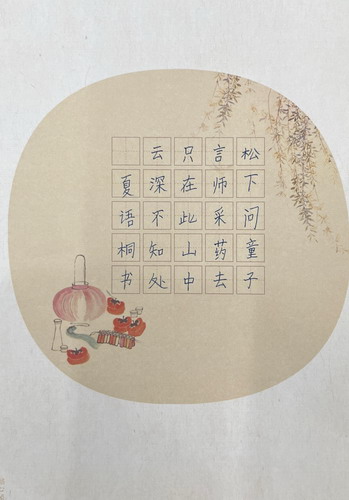 松下问童子
言师采药去
只在此山中
云深不知处
夏语桐书